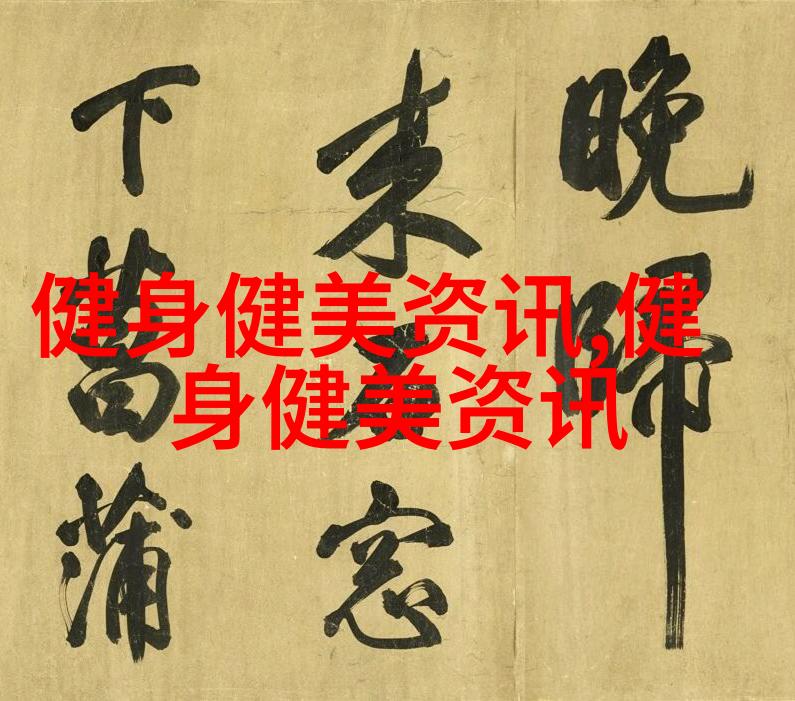 健身健美资讯,健
身健美资讯
晚歸
来窓
下菖蒲